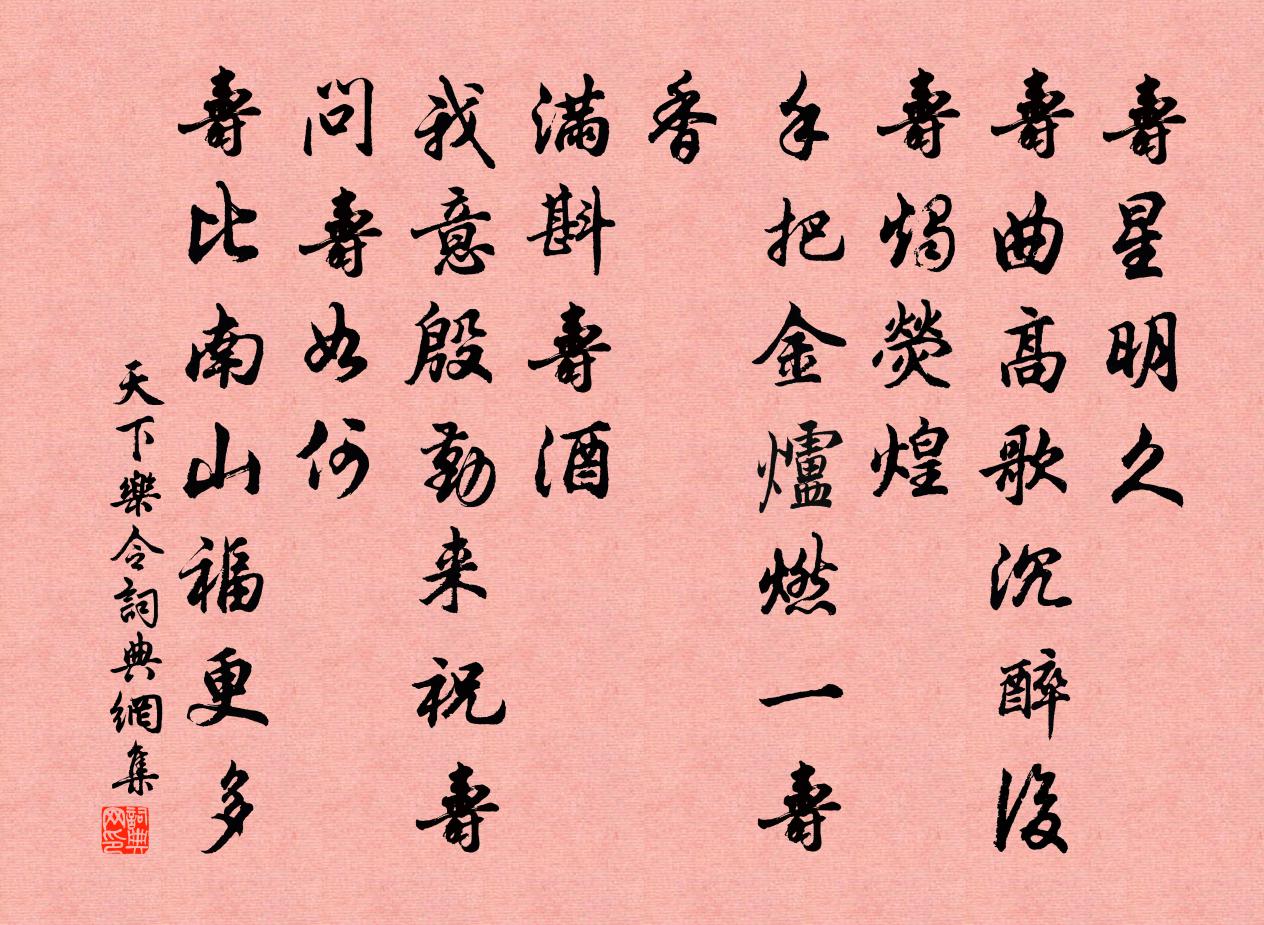 壽星明久
壽曲高歌沉醉後
壽燭熒煌
手把金爐燃一壽
香
滿斟壽酒
我意殷勤来祝壽
問壽如何
壽比南山福更多
天下樂令詞典網集
詞典网印